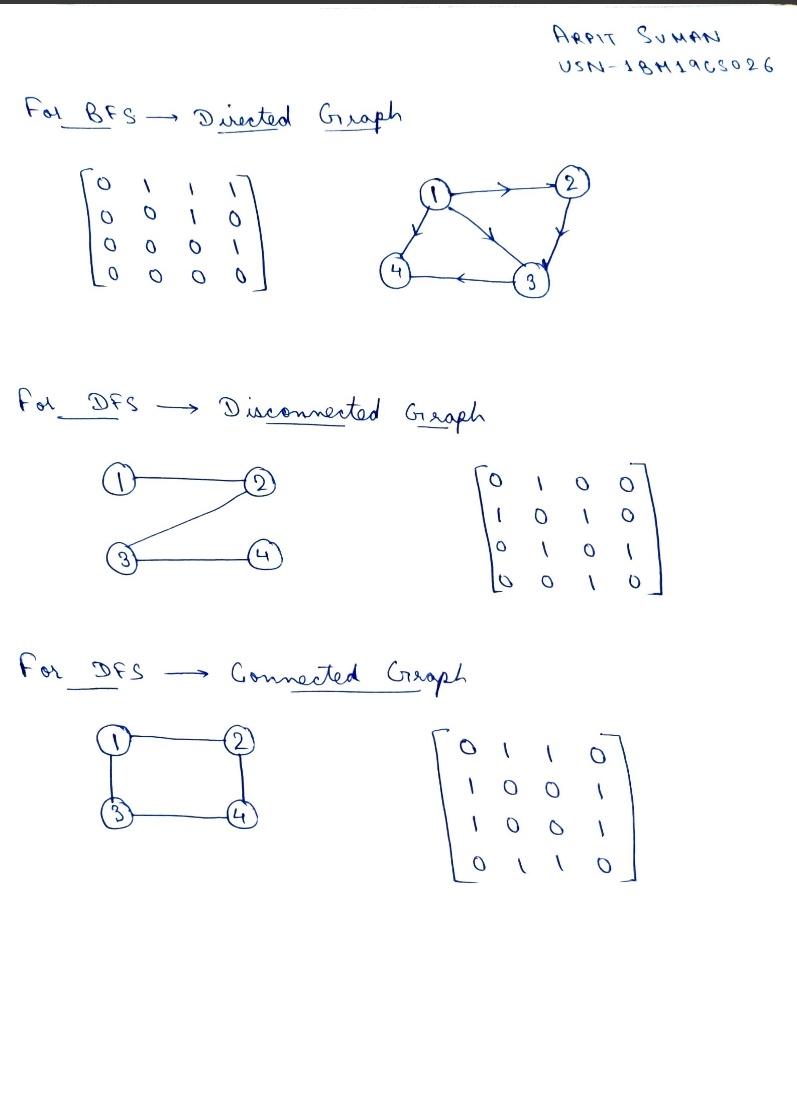 ARPIT SUMAN
USN-1BM19CS026
For BFS → Directed Graph
0 1 1 1
0 0 1 0
0 0 0 1
0 0 0 0
1
2
4
3
For DFS → Disconnected Graph
1
2
3
4
0 1 0 0
1 0 1 0
0 1 0 1
0 0 1 0
For DFS → Connected Graph
1
2
3
4
0 1 1 0
1 0 0 1
1 0 0 1
0 1 1 0